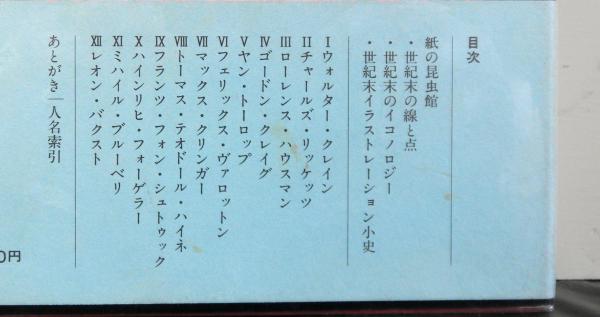 目次
紙の昆虫館
・世紀末の線と点
・世紀末のイコノロジー
・世紀末イラストレーション小史
Ⅰウォルター・クレイン
Ⅱチャールズ・リッケッツ
Ⅲローレンス・ハウスマン
Ⅳゴードン・クレイグ
Ⅴヤン・トーロップ
Ⅵフェリックス・ヴァロットン
Ⅶマックス・クリンガー
Ⅷトーマス・テオドール・ハイネ
Ⅸフランツ・フォン・シュトゥック
Ⅹハインリヒ・フォーゲラー
Ⅺミハイル・ブルーベリ
Ⅻレオン・バクスト
あとがき｜人名索引
0円